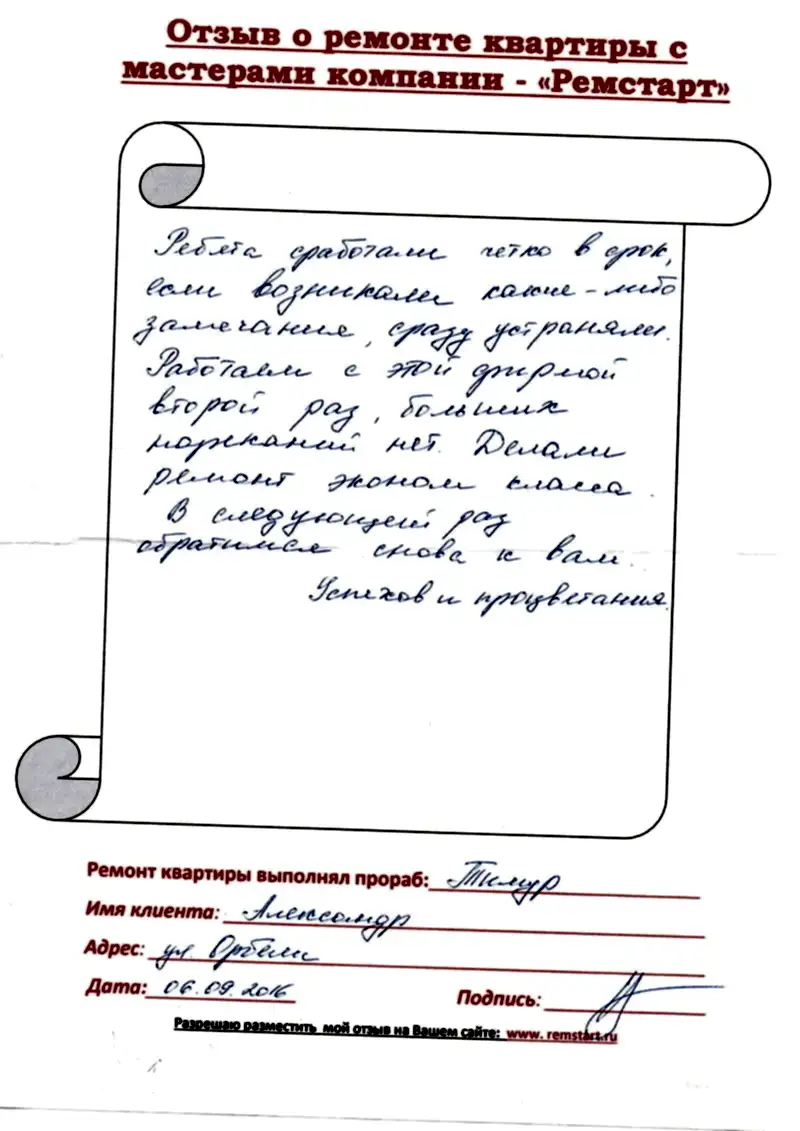 Отзыв о ремонте квартиры с
мастерами компании - «Ремстарт»
Ребята сработали четко в срок,
если возникали какие-либо
замечания, сразу устраняли.
Работаем с этой фирмой
второй раз, больших
нареканий нет. Делали
ремонт эконом класса.
В следующей раз
обратимся снова к вам.
Успехов и процветания.
Ремонт квартиры выполнял прораб: Тимур
Имя клиента: Александр
Адрес: ул. Орбели
Дата: 06.09.2016 Подпись:
Разрешаю разместить мой отзыв на Вашем сайте: www. remstart.ru